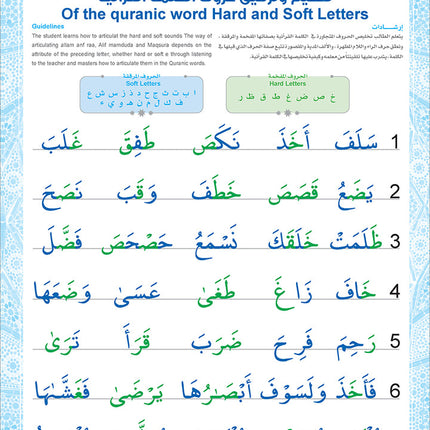 Of the quranic word Hard and Soft Letters
Guidelines
The student learns how to articulat the hard and soft sounds The way of
articulating allam anf raa, Alif mamduda and Maqsura depends on the
attribute of the preceding letter, whether hard or soft e through listening
to the teacher and masters how to articulate them in the Quranic words.
إرشادات
يتعلم الطالب تخليص الحروف المتجاورة في الكلمة القرآنية بصفاتها المفخمة والمرققة.
حرف الراء واللام، والألف المدية والمقصور تتبع صفة الحرف الذي قبلها في
الكلمة، يتدرب عليها من معلمه وكيفية تخليصها في الكلمة القرآنية.
الحروف المرققة
Soft Letters
ا ب ت ث ج ح د ذ ز س ش ع
ف ك ل م ن هـ و ي ء
الحروف المفخمة
Hard Letters
خ ص ض غ ط ق ظ ر
1 سَلَفَ أَخَذَ نَكَصَ طَفِقَ غَلَبَ
2 يَضَعُ قَصَصَ خَطَفَ وَقَبَ نَصَحَ
3 ظَلَمَتْ خَلَقَكَ نَسْمَعُ حَصْحَصَ فَضَّلَ
4 خَافَ زَاغَ طَغَىٰ عَسَىٰ وَضَعَهَا
5 رَحِمَ فَرِحَ ضَرَبَ قَرَأَ تَرَىٰ
6 فَأَخَذَ وَلَسَوْفَ أَبْصَـٰرُهَا يَرْضَىٰ فَغَشَّـٰىهَا